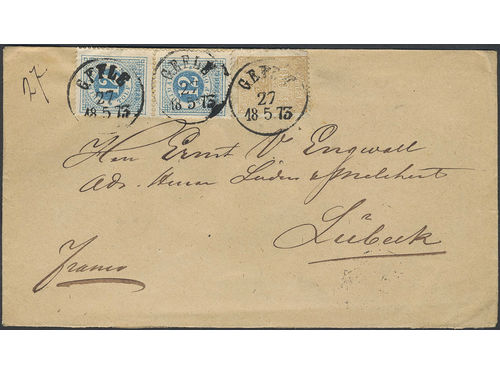 27.
GEFLE
27
18 5 73
12
GEFLE
27
18 5 73
12
GEFLE
27
18 5 73
Herr Ernst V Engwall
Adr. Herrn Lüders & Melchert
Lübeck
Franco